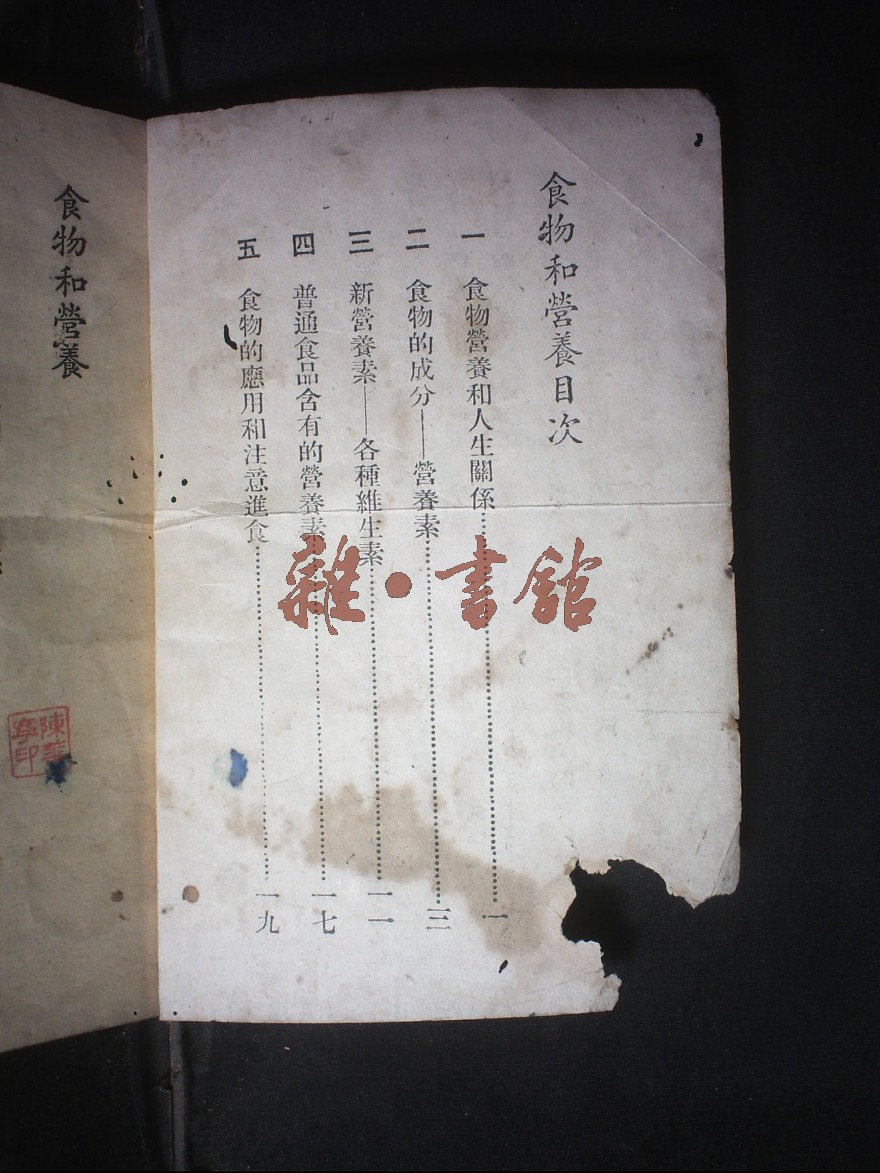 食物和營養目次
一 食物營養和人生關係……一
二 食物的成分——營養素……三
三 新營養素——各種維生素……一一
四 普通食品含有的營養素……一七
五 食物的應用和注意進食……一九
食物和營養
雜·書館